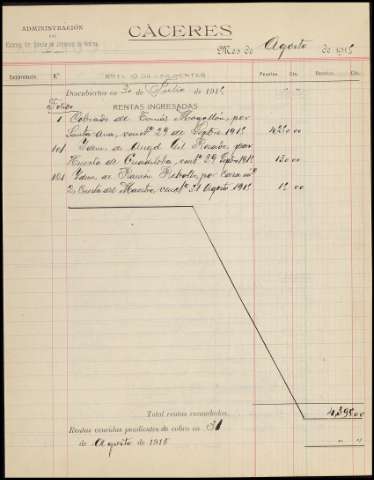 ADMINISTRACIÓN
DEL
CÁCERES
Mes de Agosto de 191
N.º
Pesetas Cts.
Pesetas Cts.
Descubiertos en 30 de Julio de 191
Folio
RENTAS INGRESADAS
1 Cobrado de Tomás Magallón, por
Santa Ana, venc.º 29 de Sepbre 191 4250 00
101 Idem de Angel Gil Rosado por
Huerta de venc.º 29 Sepbre 191 130 00
101 Idem de Ramón Rebollo, por Casa nº
2, Cuesta del Maestre, venc.º 31 Agosto 191 15 00
Total rentas recaudadas. 4,395 00
Rentas vencidas pendientes de cobro en 31
de Agosto de 191 " "